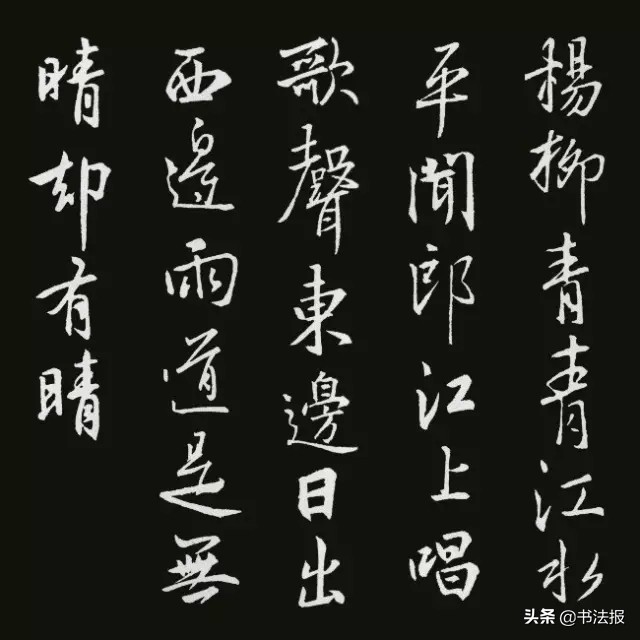 楊柳青青江水
平聞郎江上唱
歌聲東邊日出
西邊雨道是無
晴却有晴
头条 @书法报